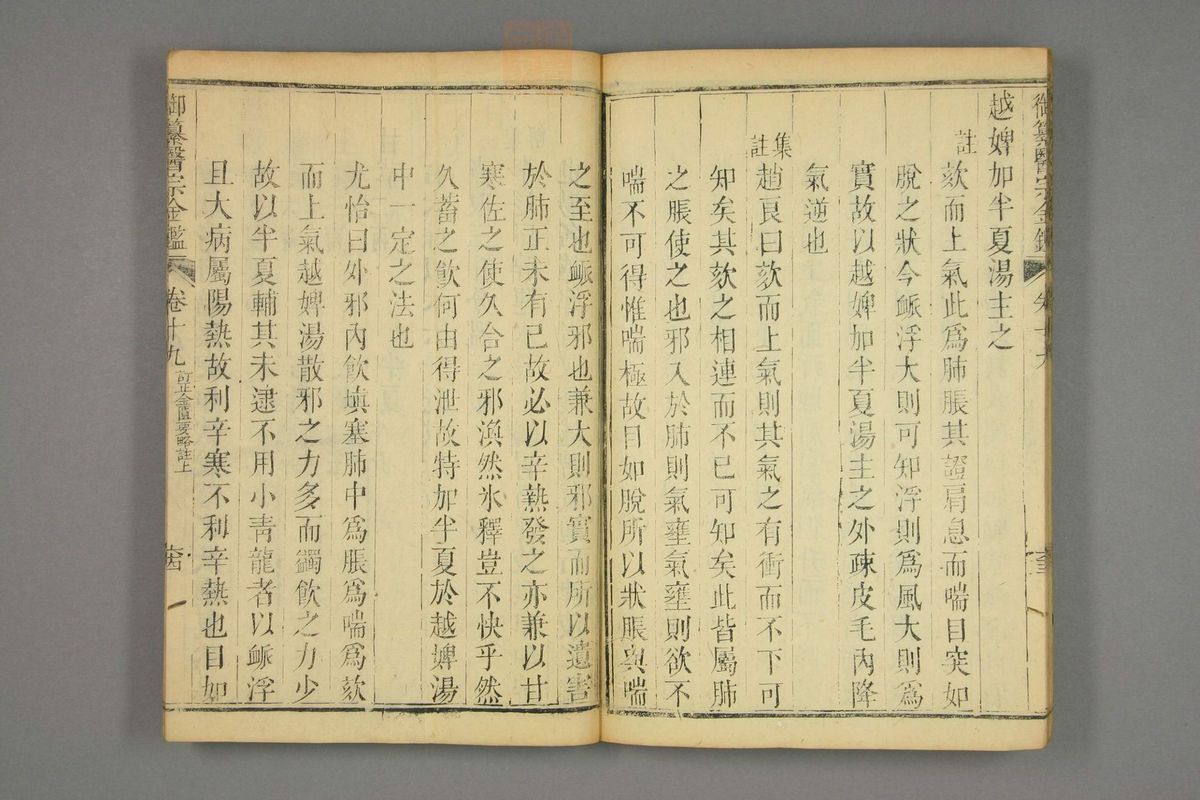 御纂醫宗金鑑
越婢加半夏湯主之
註欬而上氣此爲肺脹其證肩息而喘目突如
脫之狀今脈浮大則可知浮則爲風大則爲
實故以越婢加半夏湯主之外疎皮毛內降
氣逆也
集註趙良曰欬而上氣則其氣之有衝而不下可
知矣其欬之相連而不已可知矣此皆屬肺
之脹使之也邪入於肺則氣壅氣壅則欲不
喘不可得惟喘極故目如脫所以狀脹與喘
之至也脈浮邪也兼大則邪實而所以遺害
於肺正未有已故必以辛熱發之亦兼以甘
寒佐之使久合之邪渙然氷釋豈不快乎然
久蓄之飮何由得泄故特加半夏於越婢湯
中一定之法也
尤怡曰外邪內飮塡塞肺中爲脹爲喘爲欬
而上氣越婢湯散邪之力多而蠲飮之力少
故以半夏輔其未逮不用小靑龍者以脈浮
且大病屬陽熱故利辛寒不利辛熱也目如
御纂醫宗金鑑 卷十九 訂正金匱要略註上 六四